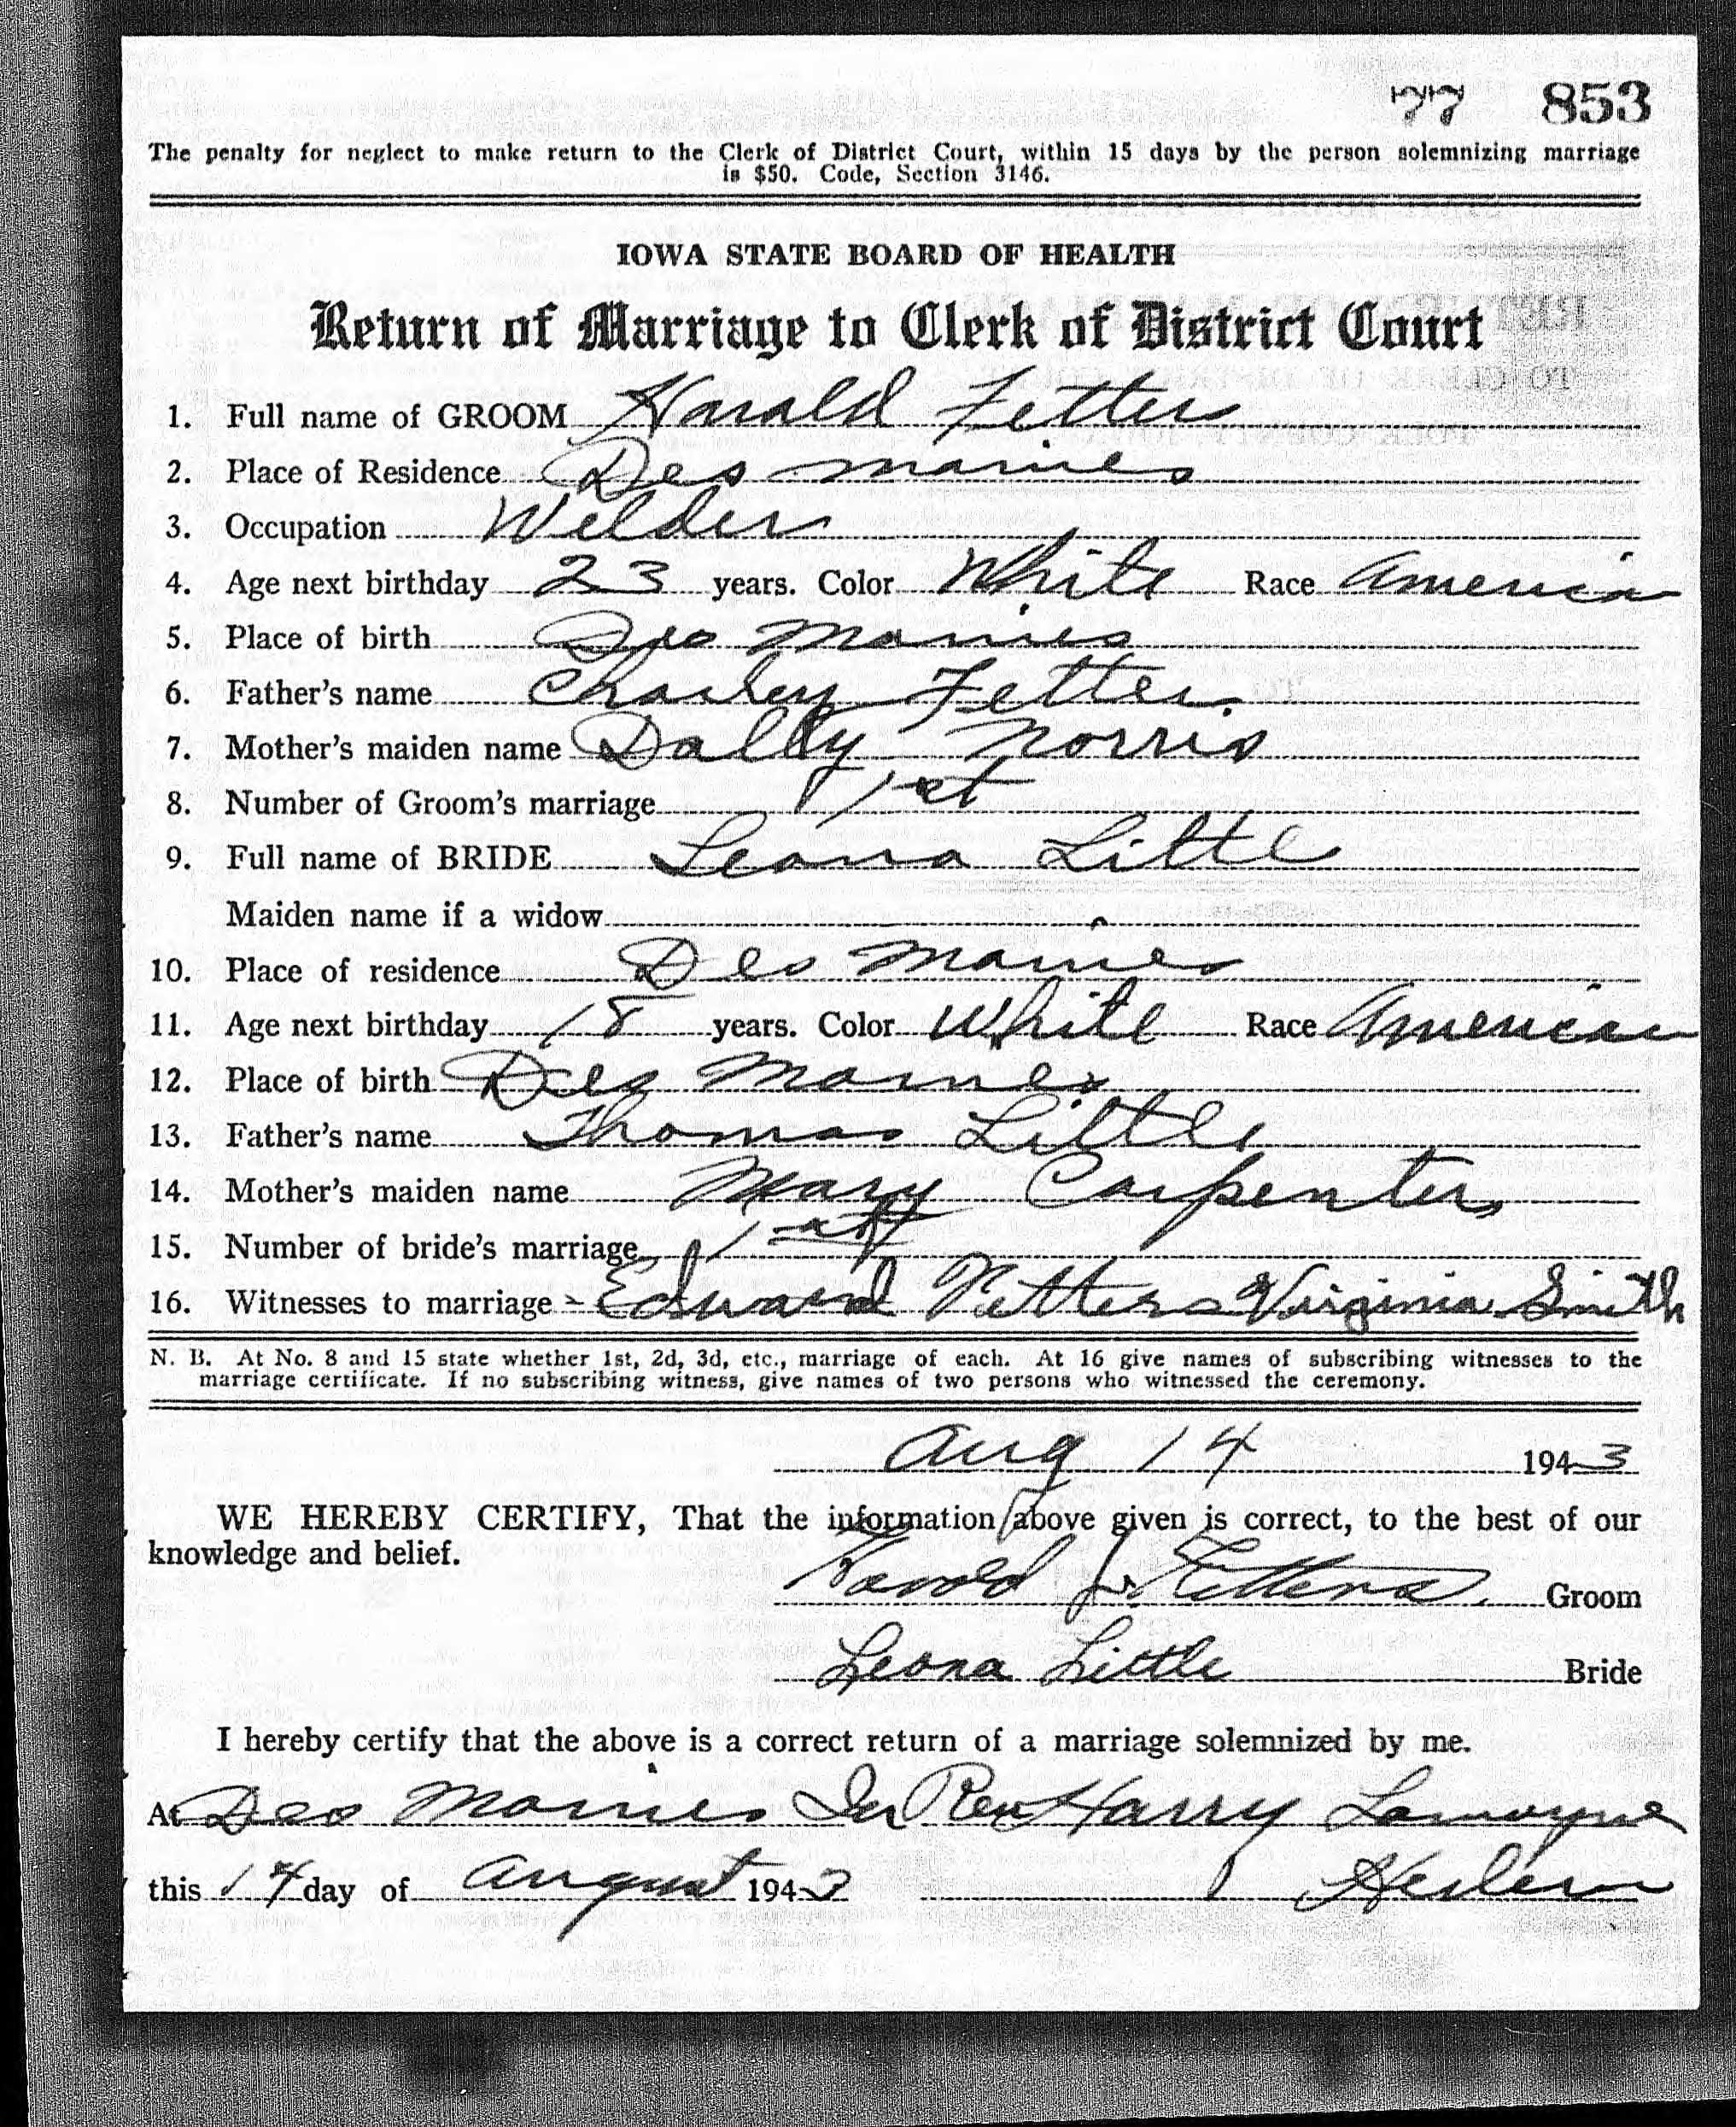 77 853
The penalty for neglect to make return to the Clerk of District Court, within 15 days by the person solemnizing marriage
is $50. Code, Section 3146.
IOWA STATE BOARD OF HEALTH
Return of Marriage to Clerk of District Court
1. Full name of GROOM Harald Fetter
2. Place of Residence Des Moines
3. Occupation Welder
4. Age next birthday 23 years. Color White Race America
5. Place of birth Des Moines
6. Father's name Charley Fetter
7. Mother's maiden name Dolly Norris
8. Number of Groom's marriage 1st
9. Full name of BRIDE Leona Little
Maiden name if a widow
10. Place of residence Des Moines
11. Age next birthday 18 years. Color White Race American
12. Place of birth Des Moines
13. Father's name Thomas Little
14. Mother's maiden name Mary Carpenter
15. Number of bride's marriage 1st
16. Witnesses to marriage Edward Virginia Smith
N. B. At No. 8 and 15 state whether 1st, 2d, 3d, etc., marriage of each. At 16 give names of subscribing witnesses to the
marriage certificate. If no subscribing witness, give names of two persons who witnessed the ceremony.
Aug 14 1943
WE HEREBY CERTIFY, That the information above given is correct, to the best of our
knowledge and belief.
Harold Fetters Groom
Leona Little Bride
I hereby certify that the above is a correct return of a marriage solemnized by me.
At Des Moines Ia Rev Harry Lamoyne
this 14 day of August 1943